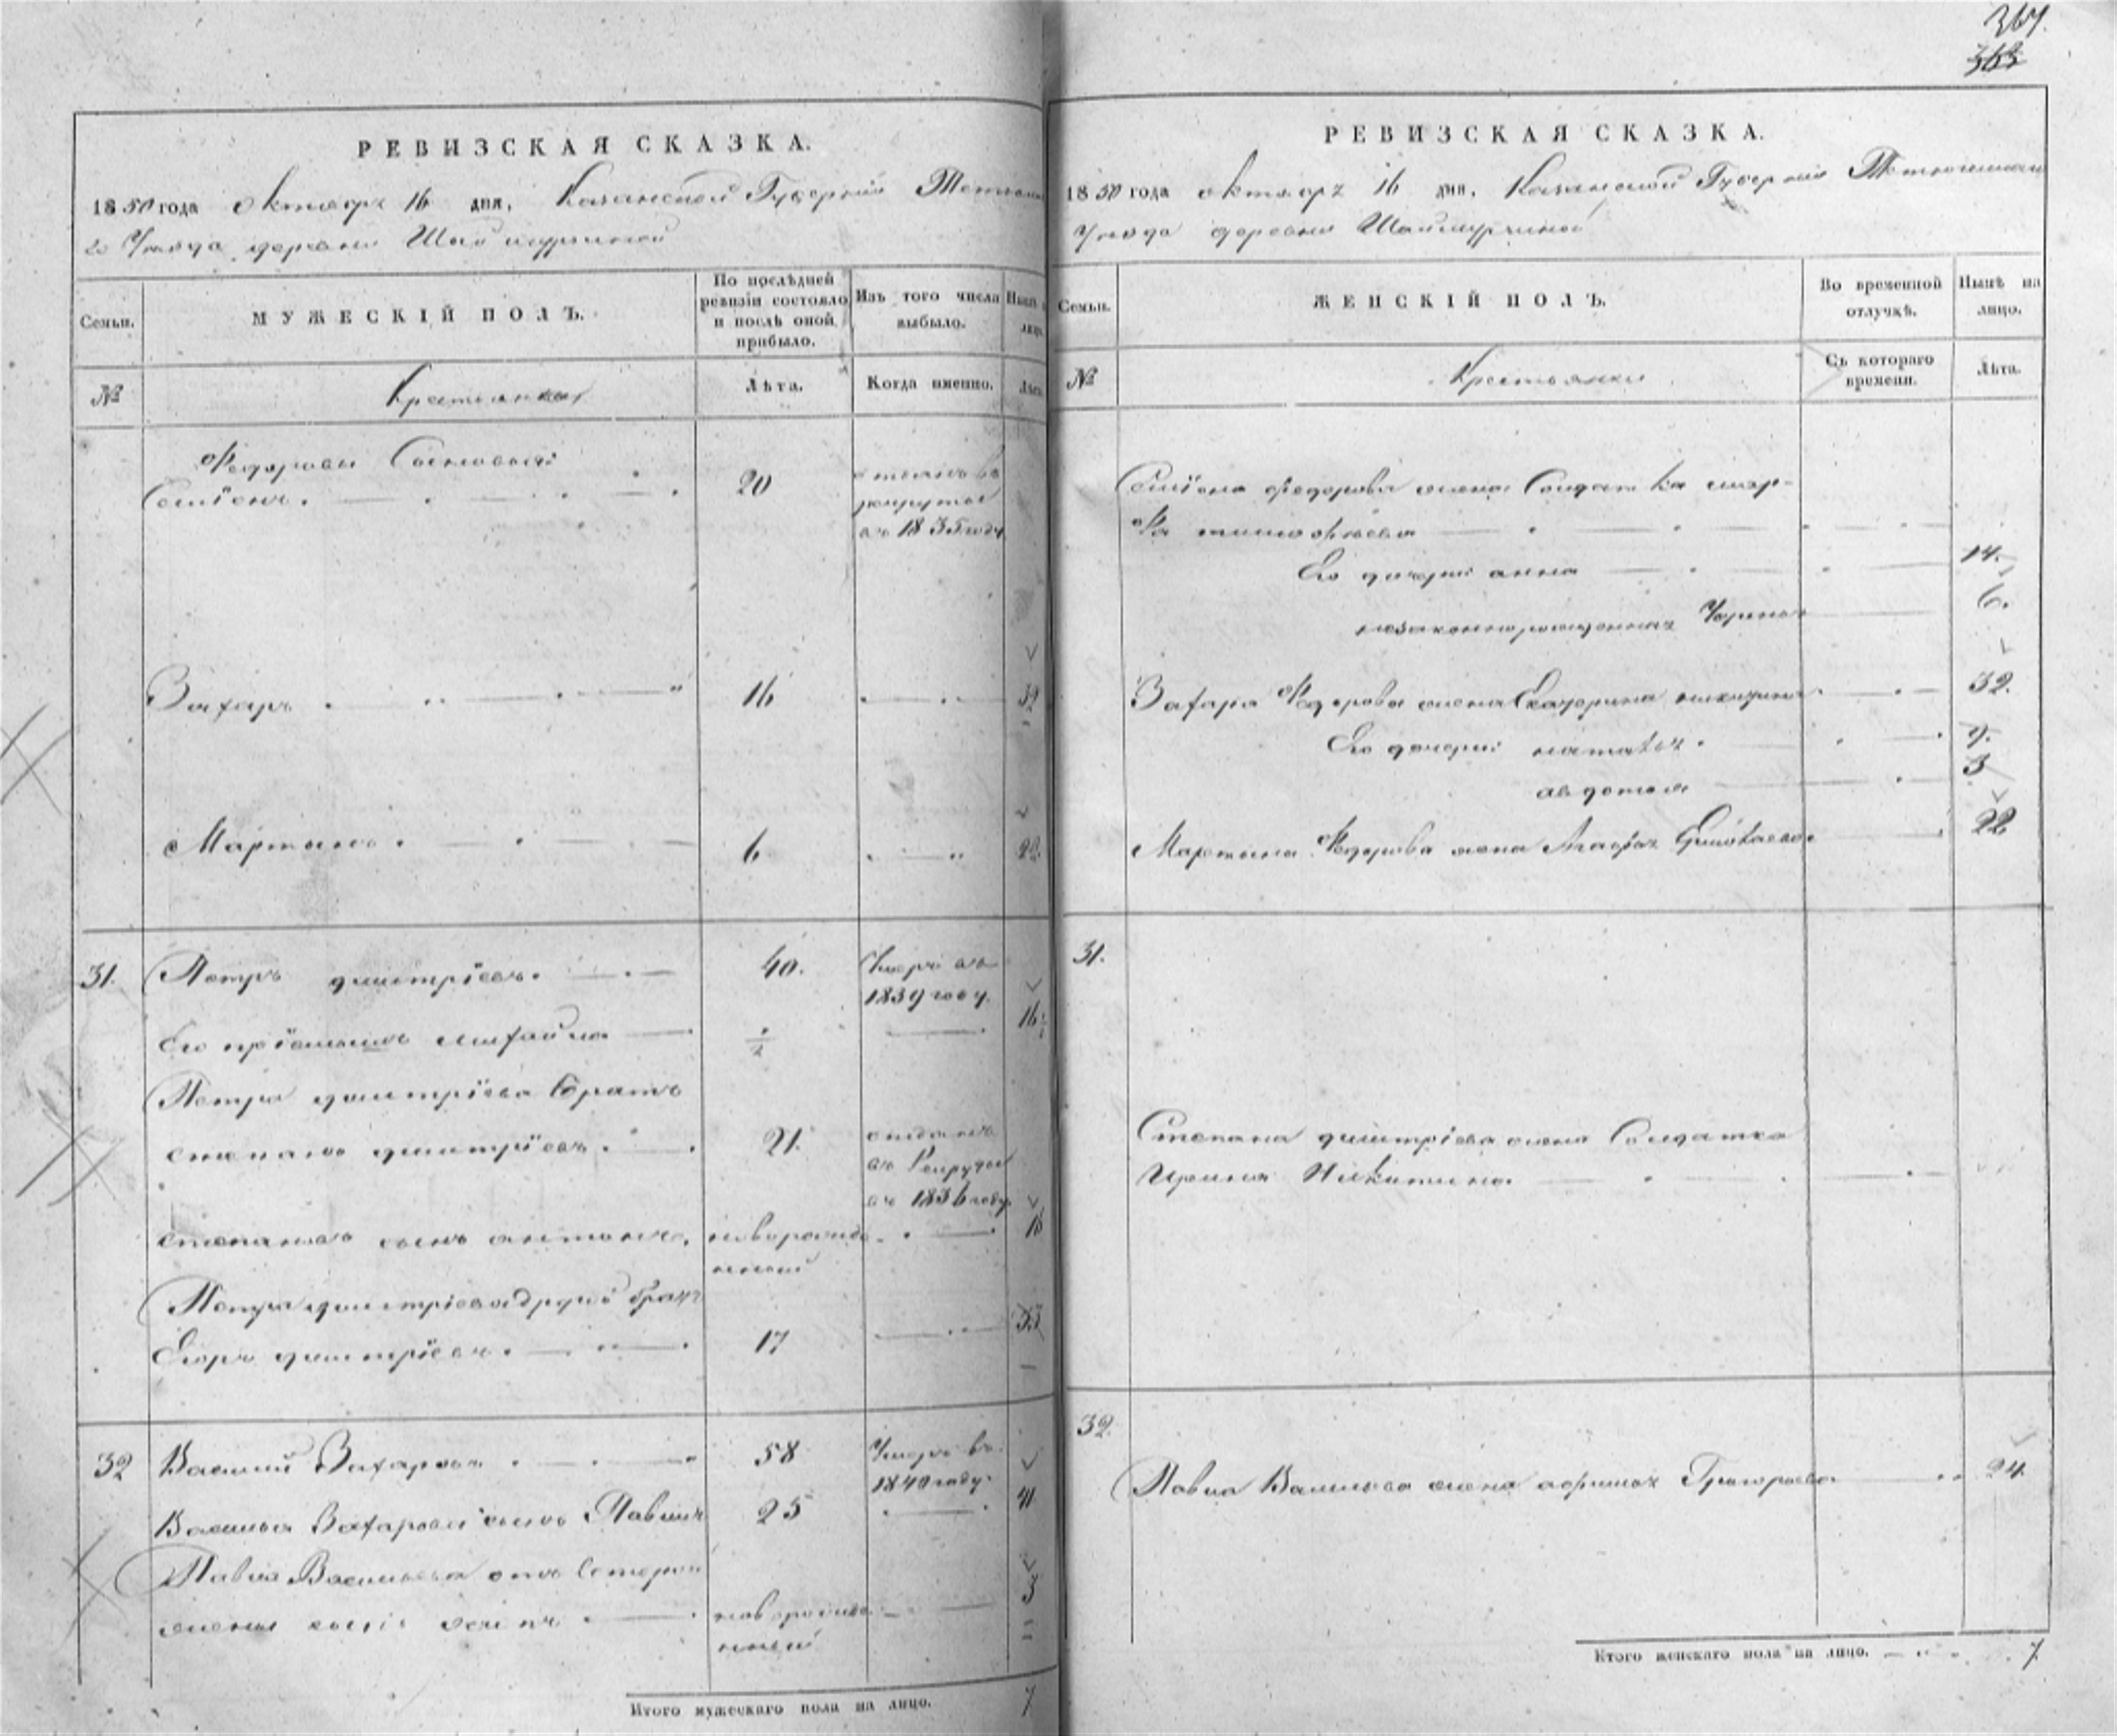 364.
363
РЕВИЗСКАЯ СКАЗКА.
1850 года октября 16 дня, Казанской Губернiи Тетюшска
го Уезда деревни Шаймурзиной
Семьи.
МУЖЕСКІЙ ПОЛЪ.
По послѣдней ревизіи состояло и послѣ оной прибыло.
Изъ того числа выбыло.
Нынѣ на лицо.
№
Крестьянъ
Лѣта.
Когда именно.
Лѣта
Федоровы Сыновья:
Семіонъ. 20 отданъ въ
рекруты
въ 1835 году
Захаръ 16 32
Мартынъ 6 22
31. Петръ дмитріевъ. 40. Умеръ въ
1839 году.
Его пріемышъ михайла ½ 16½
Петра дмитріева братъ
степанъ дмитріевъ. 21. отданъ
въ Рекруты
въ 1836 году
степановъ сынъ антонъ. новорожде
нный 16
Петра дмитріева другой братъ
Егоръ дмитріевъ. 17 33
32 Василий Захаровъ 58 Умеръ въ
1840 году.
Василья Захарова сынъ Павилъ 25 41
Павла Васильева отъ второй
жены сынъ осипъ новорожде 3
нный
Итого мужескаго пола на лицо. 7
РЕВИЗСКАЯ СКАЗКА.
1850 года октября 16 дня, Казанской Губерніи Тетюшскаго
Уезда деревни Шаймурзиной
Семьи.
ЖЕНСКІЙ ПОЛЪ.
Во временной отлучкѣ.
Нынѣ на лицо.
№
Крестьянки
Съ котораго времени.
Лѣта.
Семіона федорова жена Солдатка мар-
фа тимофѣева
Его дочери: анна 14.
незаконнорожденная 6.
Захара Федорова жена Екатерина никитина 32.
Его дочери: наталья. 9.
авдотья 3
Мартына Федорова жена Агафья 22
31.
Степана дмитріева жена Солдатка
Ирина Никитина
32.
Павла Васильева жена афимья Григорьева 24
Итого женскаго пола на лицо. 7